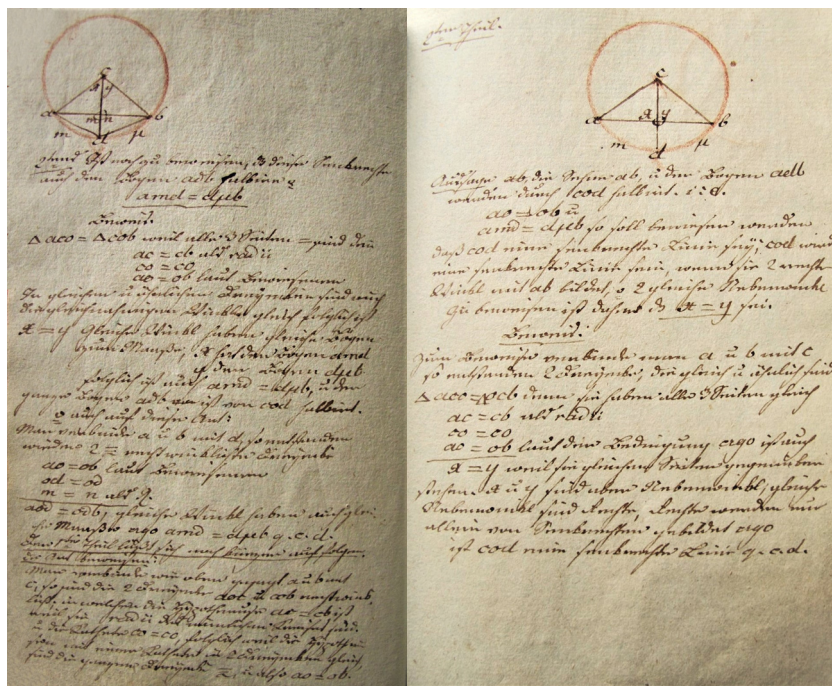 c
x y
a m n b
m d p
2tens Ist noch zu beweisen, diese Senkrechte
auch den Bogen adb halbire
amd = dpb
Beweis.
Δ aco = Δ cob weil alle 3 Seiten = sind den
ac = cb als radii
co = co
ao = ob laut Bewiesenem
In gleichen u ähnlichen Dreyecken sind auch
die gleichnahmigen Winkl gleich folglich ist
x = y Gleiche Winkl haben gleiche Bögen
zum Maaße, x hat den Bogen amd
y den Bogen dpb
folglich ist auch amd = dpb, u der
ganze Bogen adb ist von cod halbirt.
o auch auf diese Art:
Man verbinde a u b mit d, so entstanden
wieder 2 = recht winklichte Dreyecke
ao = ob laut Bewiesenem
od = od
m = n als R.
gleiche Winkl haben auch
Maaße ergo amd = dpb q. e. d.
Theil läßt sich noch kürzer auf folgen
de Art beweisen:
Man verbinde wie oben gesagt a u b mit
c, so sind die 2 Dreyecke aoc u cob rechtwink
in welchen die Hypothenuse ac = cb ist
weil sie radii des nämlichen Kreises sind
u die Kathete co = co, folglich weil die
eine Kathete in 2 Dreyecken gleich
sind die ganzen Dreyecke =, u also ao = ob.
2ter Theil.
c
x y
a o b
m d p
Aussage ab, die Sehne ab, u den Bogen adb
werden durch cod halbirt. i: e.
ao = ob u
amd = dpb so soll bewiesen werden
daß cod eine senkrechte Linie sey; cod wird
eine senkrechte Linie sein, wenn sie 2 rechte
Winkl mit ab bildet, o 2 gleiche Nebenwinkl
Zu beweisen ist daher x = y sei.
Beweis:
Zum Beweise verbinde man a u b mit c
so entstanden 2 Dreyecke, die gleich u ähnlich sind
Δ aco = ocb denn sie haben alle 3 Seiten gleich
ac = cb als radii
co = co
ao = ob laut der Bedingung ergo ist auch
x = y weil sie gleichen Seiten gegenüber
stehen. x u y sind aber Nebenwinkl; gleiche
Nebenwinkl sind Rechte, Rechte werden nur
allein von Senkrechten gebildet ergo
ist cod eine senkrechte Linie q. e. d.